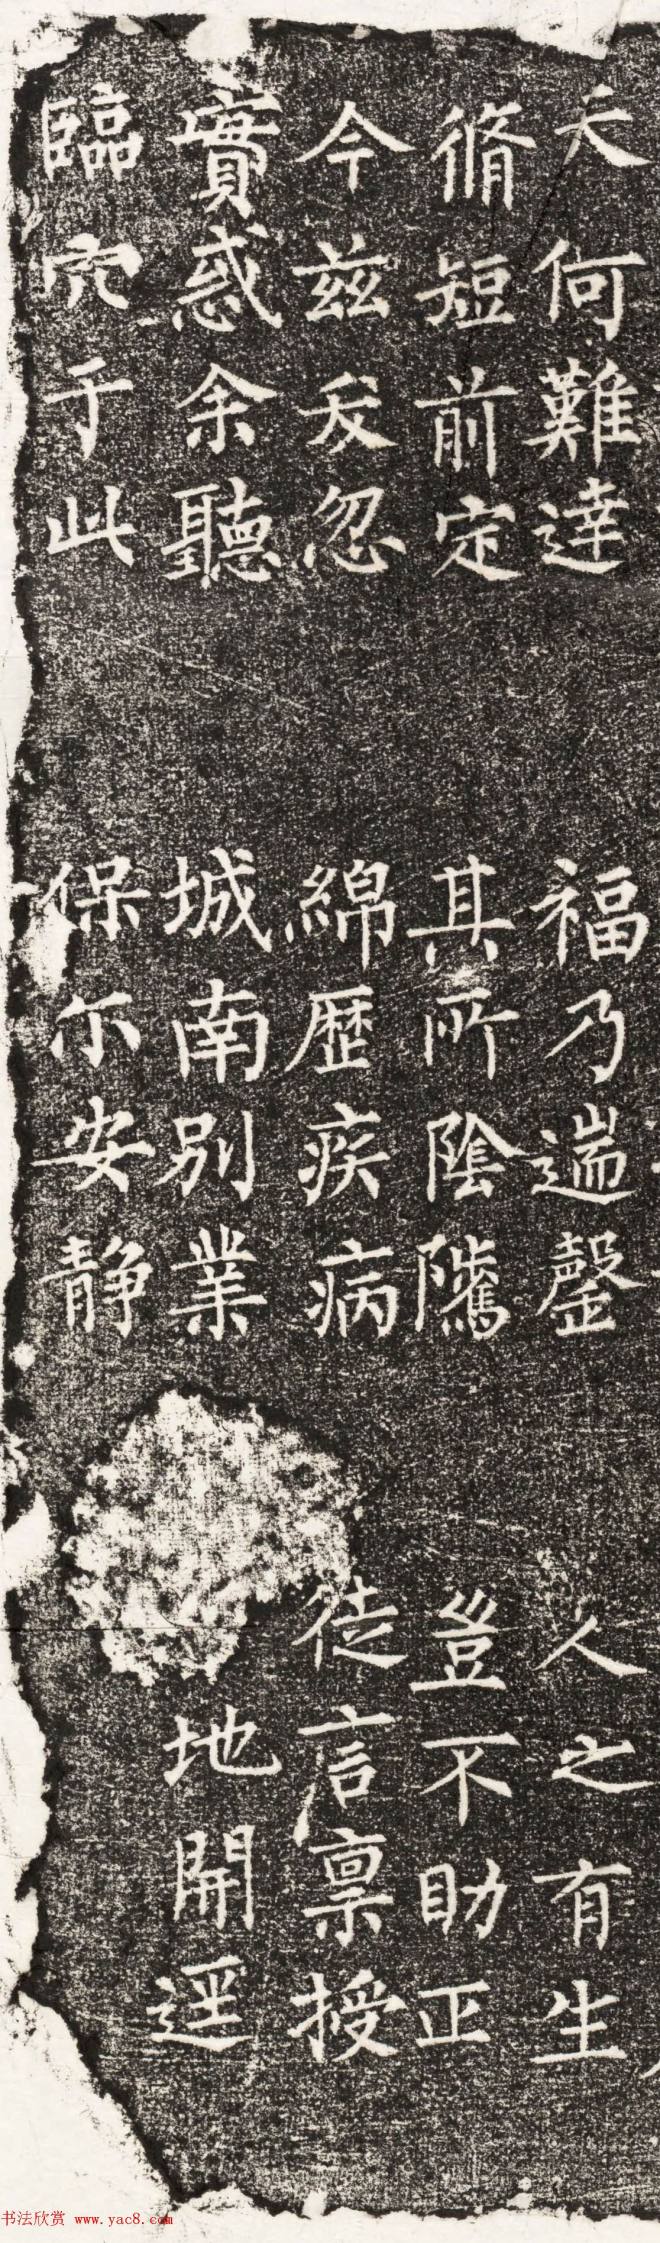 天何難達 福乃遄罄 人之有生
脩短前定 其所陰隲 豈不助正
今兹忽 綿歷疾病 徒言禀授
實惑余聽 城南別業 地開逕
臨穴于此 保尔安静
书法欣赏 www.yac8.com